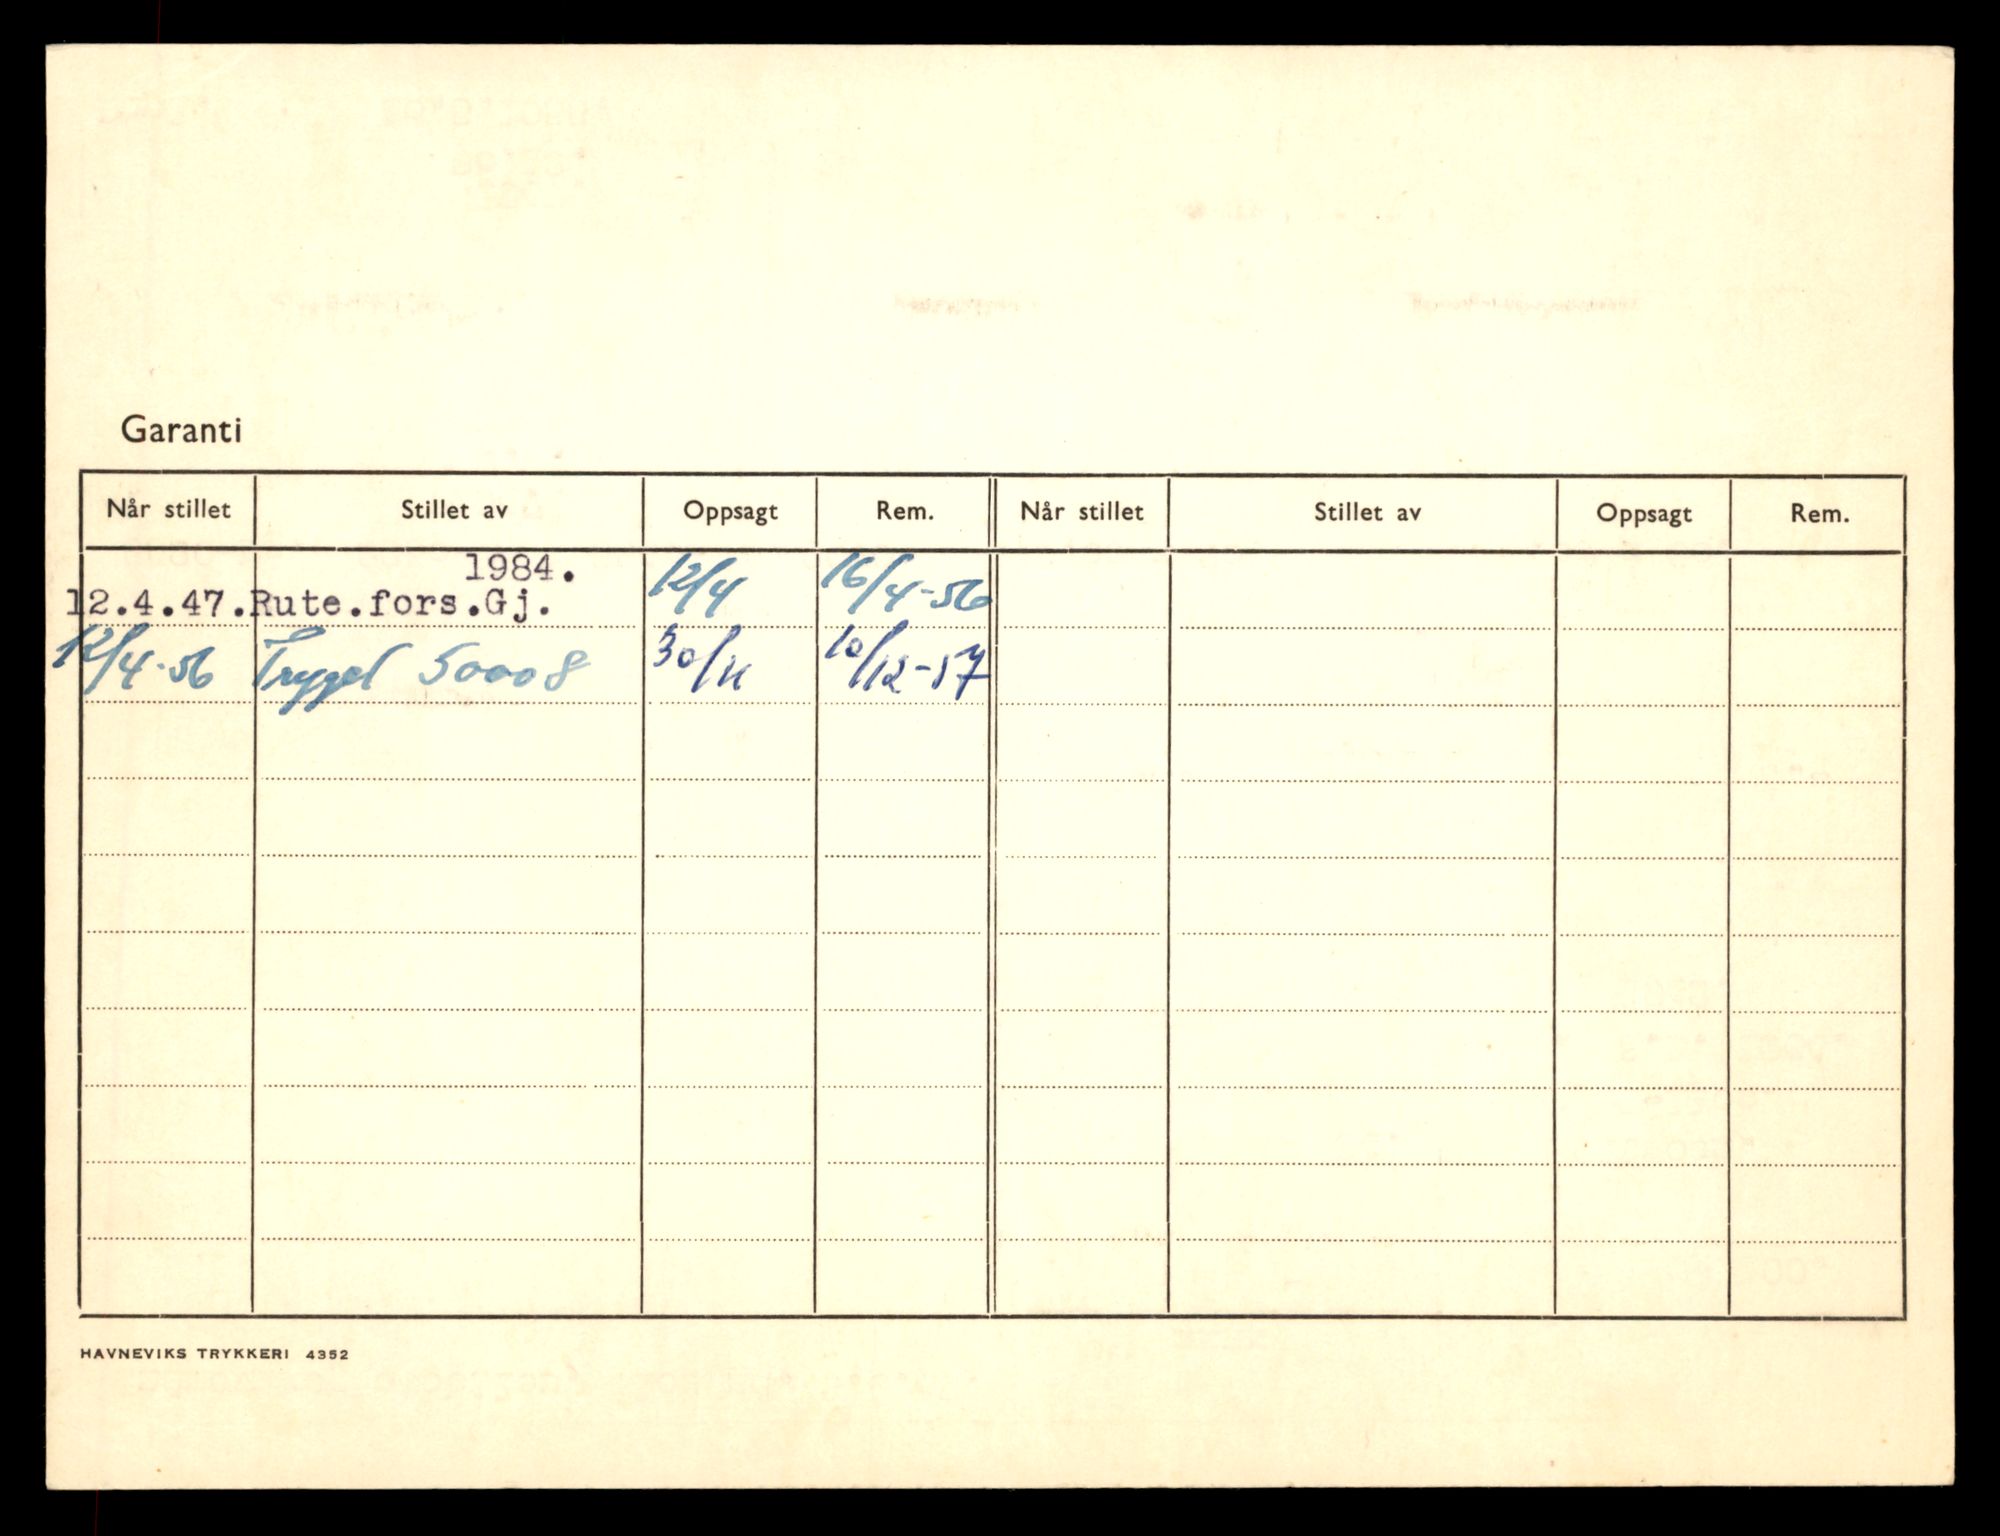 Garanti
Når stillet Stillet av Oppsagt Rem. Når stillet Stillet av Oppsagt Rem.
1984.
12.4.47. Rute.fors.Gj. 12/4 16/4-56
12/4-56 Trygd 50008 30/11 10/12-57
HAVNEVIKS TRYKKERI 4352